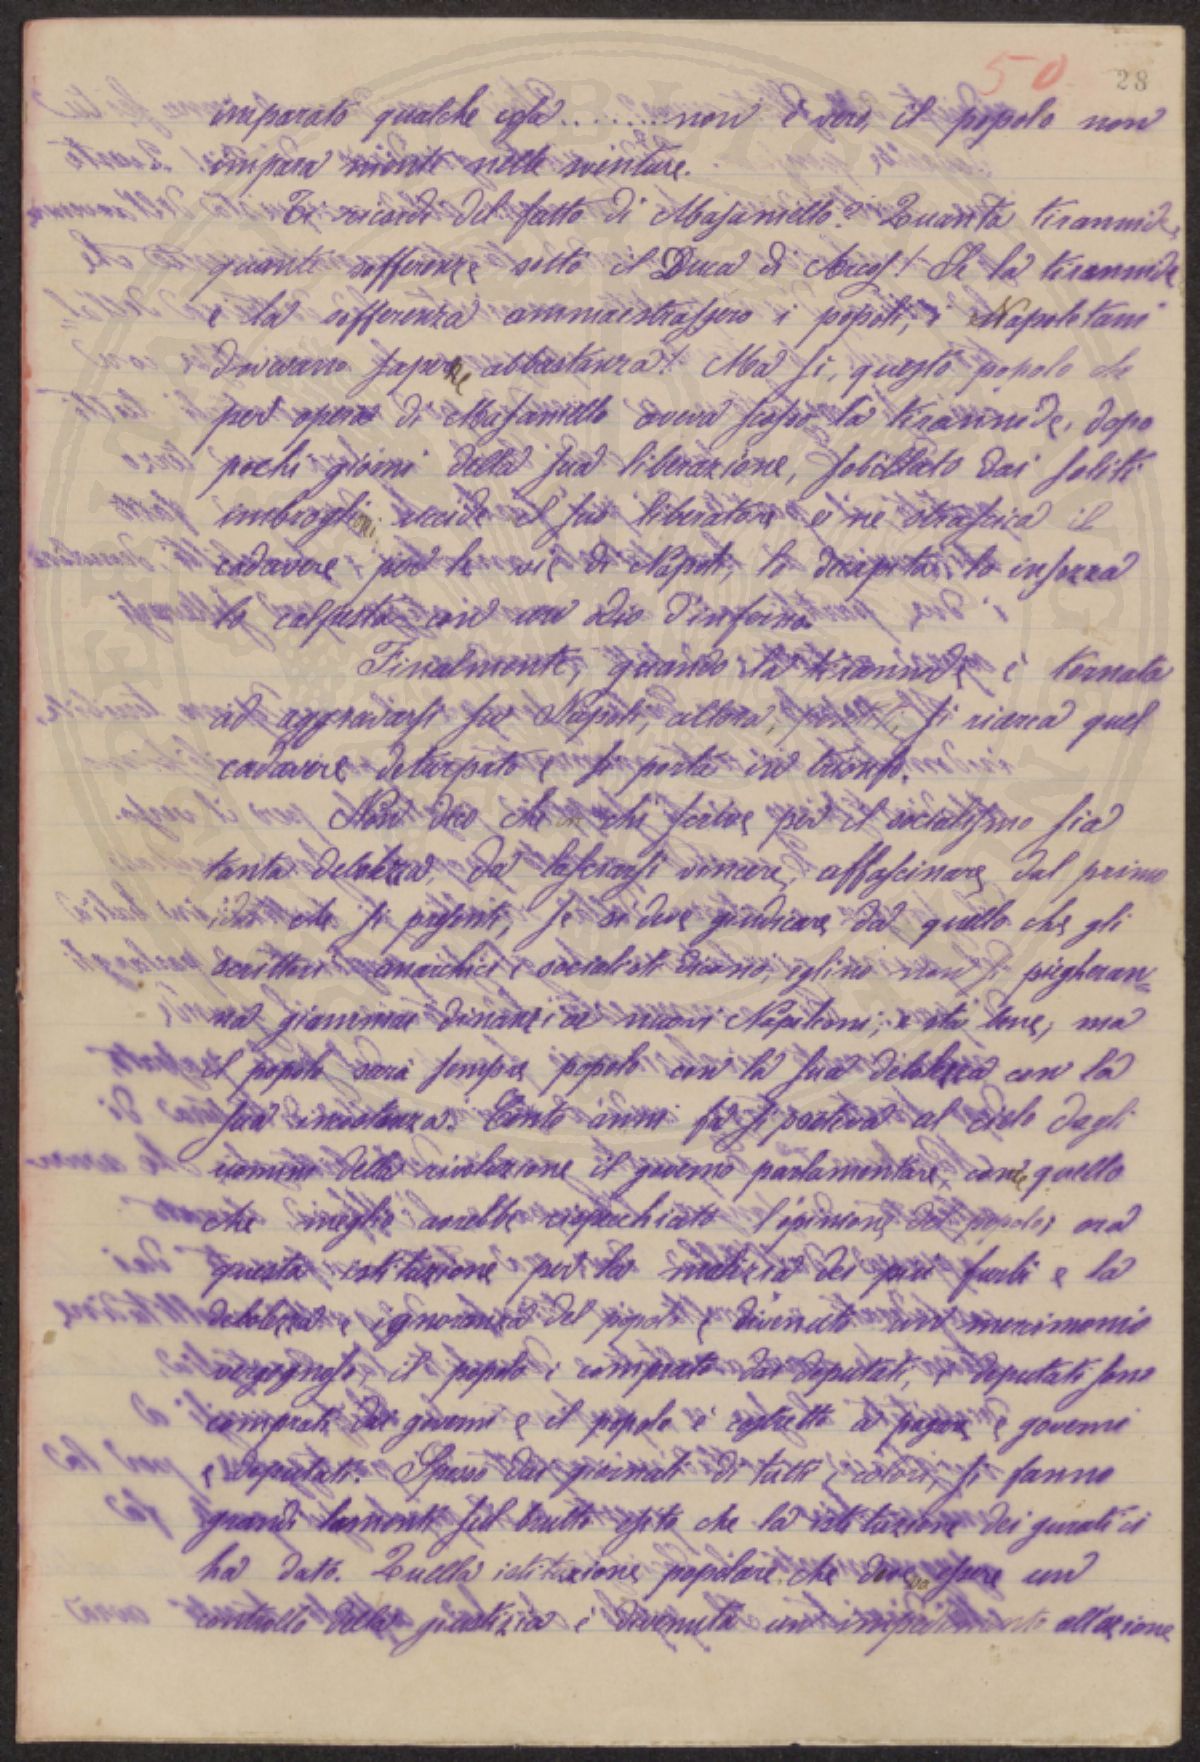 50 28
imparato qualche cosa.........non è vero, il popolo non
impara niente nelle sventure.
Ti ricordi del fatto di Masaniello? Quanta tirannide,
quante sofferenze sotto il Duca di Arcos! Se la tirannide
e la sofferenza ammaestrassero i popoli, i Napoletani
dovevano saperne abbastanza! Ma sì, questo popolo che
per opera di Masaniello aveva scosso la tirannide, dopo
pochi giorni della sua liberazione, sobillato dai soliti
imbroglioni uccide il suo liberatore e ne strascica il
cadavere per le vie di Napoli, lo decapita, lo insozza
lo calpesta con un odio d'inferno.
Finalmente, quando la tirannide è tornata
ad aggravarsi su Napoli, allora, si ricerca quel
cadavere deturpato e si porta in trionfo.
Non dico che in chi scrive per il socialismo sia
tanta debolezza, da lasciarsi vincere, affascinare dal primo
che si presenti, se si deve giudicare da quello che gli
scrittori anarchici e socialisti dicono, eglino non si piegheran=
no giammai dinanzi ai nuovi Napoleoni, e sta bene, ma
il popolo sarà sempre popolo con la sua debolezza con la
sua incostanza. Cento anni fa si portava al cielo dagli
uomini della rivoluzione il governo parlamentare, come quello
che meglio avrebbe rispecchiato l'opinione del popolo; ora
questa istituzione per la malizia dei più furbi e la
debolezza e ignoranza del popolo è divenuta un mercimonio
vergognoso, il popolo è comprato dai deputati, i deputati sono
comprati dai governi e il popolo è costretto a pagare e governi
e deputati. Spesso dai giornali di tutti i colori, si fanno
grandi lamenti sul brutto esito che la istituzione dei giurati ci
ha dato. Quella istituzione popolare che doveva essere un
controllo della giustizia è divenuta un impedimento all'azione